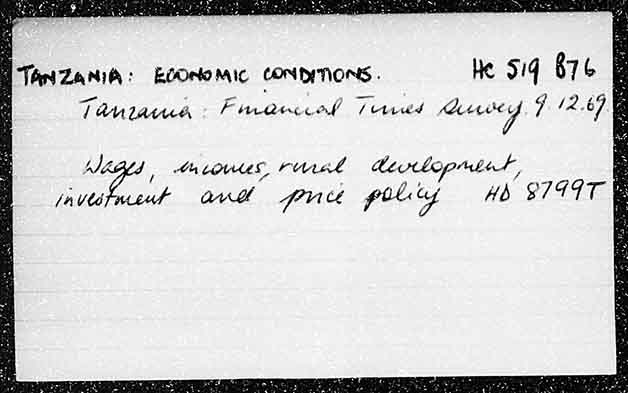 TANZANIA: ECONOMIC CONDITIONS. HC 519 B76
Tanzania: Financial Times Survey. 9.12.69.
Wages, incomes, rural development,
investment and price policy HD 8799T